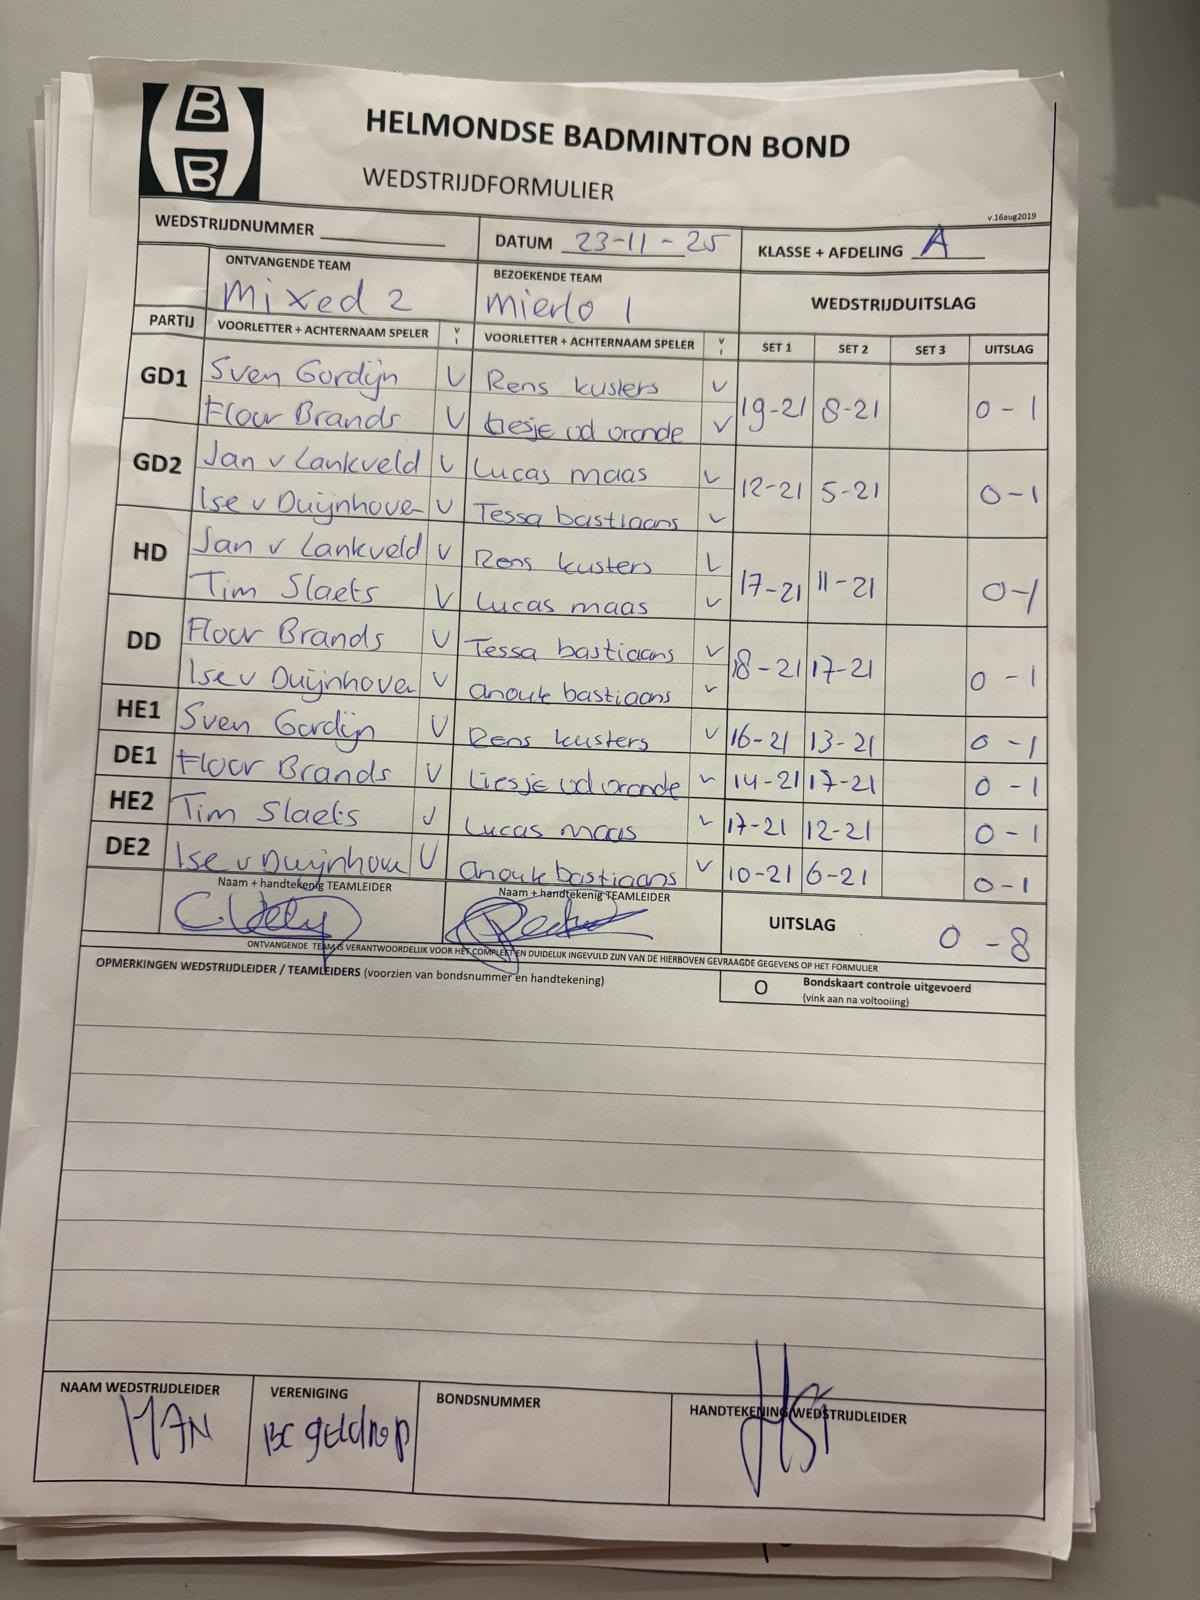 B
B
HELMONDSE BADMINTON BOND
WEDSTRIJDFORMULIER
v.16aug2019
WEDSTRIJDNUMMER
DATUM 23-11-25
KLASSE + AFDELING A
ONTVANGENDE TEAM
Mixed 2
BEZOEKENDE TEAM
mierlo 1
WEDSTRIJDUITSLAG
PARTIJ VOORLETTER + ACHTERNAAM SPELER V I VOORLETTER + ACHTERNAAM SPELER V I SET 1 SET 2 SET 3 UITSLAG
GD1 Sven Gordijn V Rens kusters V 19-21 8-21 0-1
Floor Brands V Liesje vd vrande V
GD2 Jan v Lankveld V Lucas maas V 12-21 5-21 0-1
Ise v Duijnhoven V Tessa bastiaans V
HD Jan v Lankveld V Rens kusters V 17-21 11-21 0-1
Tim Slaets V Lucas maas V
DD Floor Brands V Tessa bastiaans V 18-21 17-21 0-1
Ise v Duijnhoven V anouk bastiaans V
HE1 Sven Gordijn V Rens kusters V 16-21 13-21 0-1
DE1 Floor Brands V Liesje vd vrande V 14-21 17-21 0-1
HE2 Tim Slaets V Lucas maas V 17-21 12-21 0-1
DE2 Ise v Duijnhove V anouk bastiaans V 10-21 6-21 0-1
Naam + handtekenig TEAMLEIDER
Naam + handtekenig TEAMLEIDER
UITSLAG 0-8
ONTVANGENDE TEAM IS VERANTWOORDELIJK VOOR HET COMPLEET EN DUIDELIJK INGEVULD ZIJN VAN DE HIERBOVEN GEVRAAGDE GEGEVENS OP HET FORMULIER
OPMERKINGEN WEDSTRIJDLEIDER / TEAMLEIDERS (voorzien van bondsnummer en handtekening)
O Bondskaart controle uitgevoerd
(vink aan na voltooiing)
NAAM WEDSTRIJDLEIDER
HAN
VERENIGING
BC geldrop
BONDSNUMMER
HANDTEKENING WEDSTRIJDLEIDER